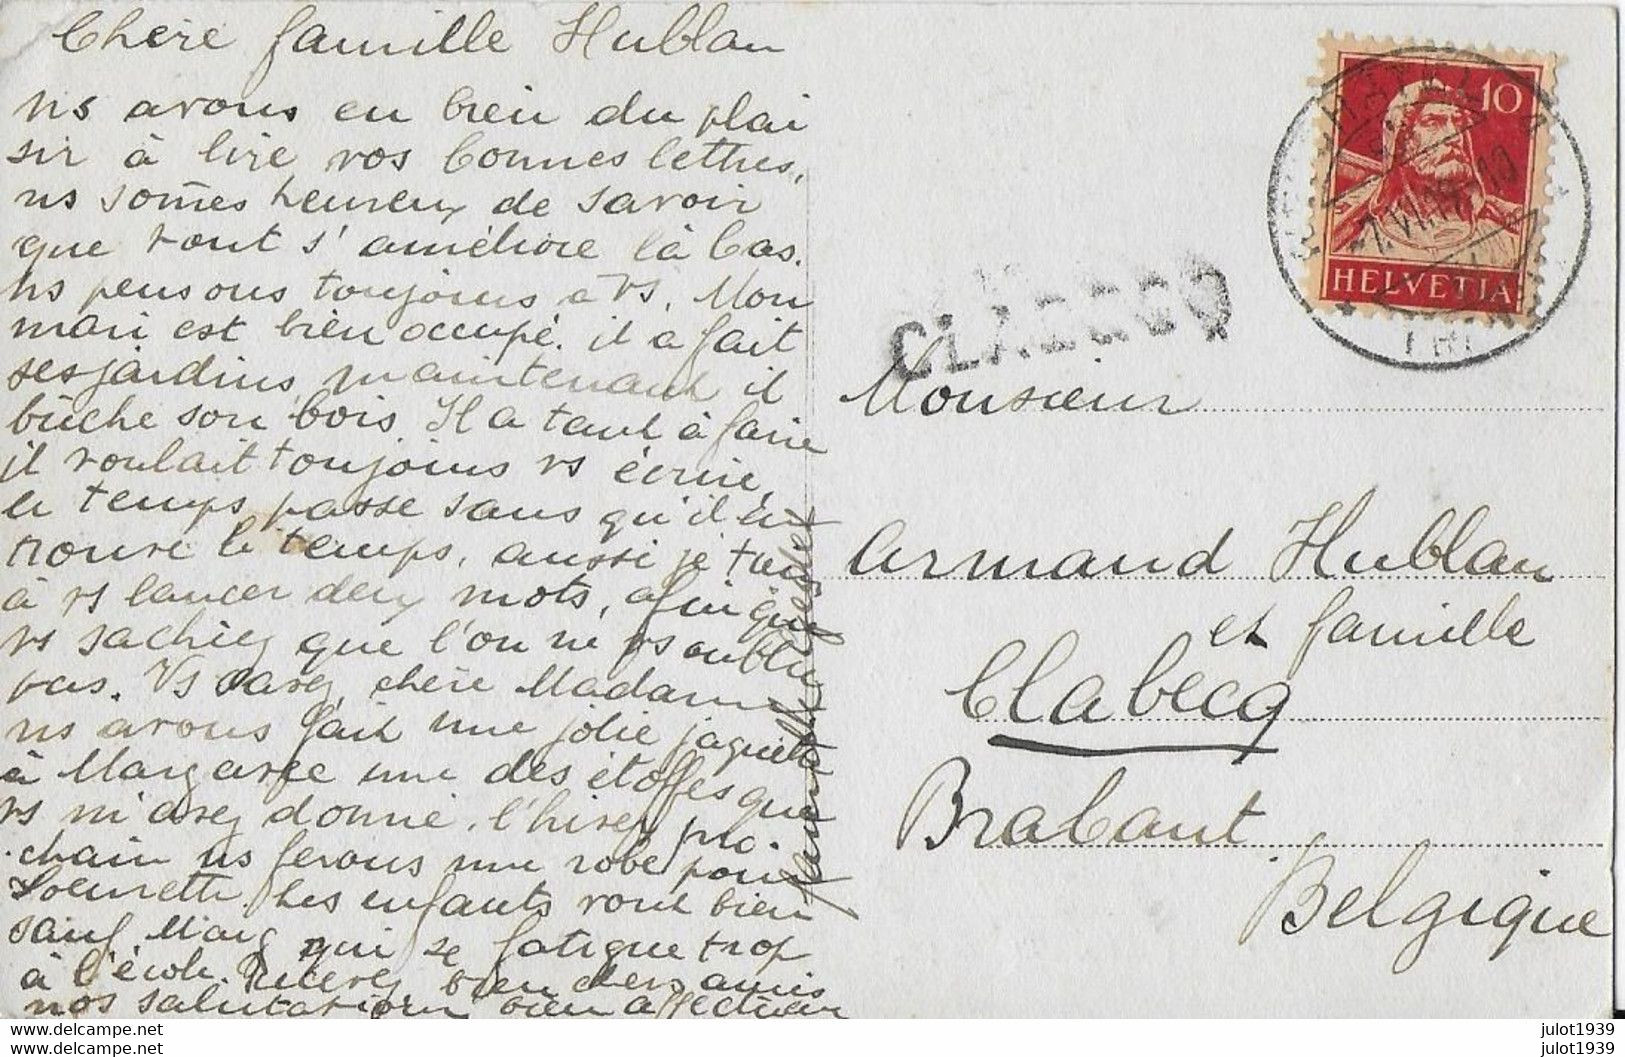 Chère famille Hublau
ns avons eu bien du plai
sir à lire vos bonnes lettres,
ns somes heureux de savoir
que tout s'améliore là bas.
ns pensons toujours a vs. Mon
mari est bien occupé. il a fait
ses jardins, maintenant il
bûche son bois. Il a tant à faire
il voulait toujours vs écrire,
le temps passe sans qu'il en
trouve le temps, aussi je
à vs lancer deux mots, afin que
vs sachiez que l'on ne vs oublie
pas. Vs savez, chère Madame
ns avons fait une jolie jaquette
à une des étoffes que
vs m'avez donné. l'hiver pro.
chain ns ferons une robe pour
Les enfants vont bien
sauf Marg qui se fatigue trop
à l'école. Recevez bien chers amis
nos salutations bien affectueu
10
HELVETIA
CLABECQ
Monsieur
Armand Hublau
et famille
Clabecq
Brabant.
Belgique
www.delcampe.net
www.delcampe.net
julot1939
julot1939